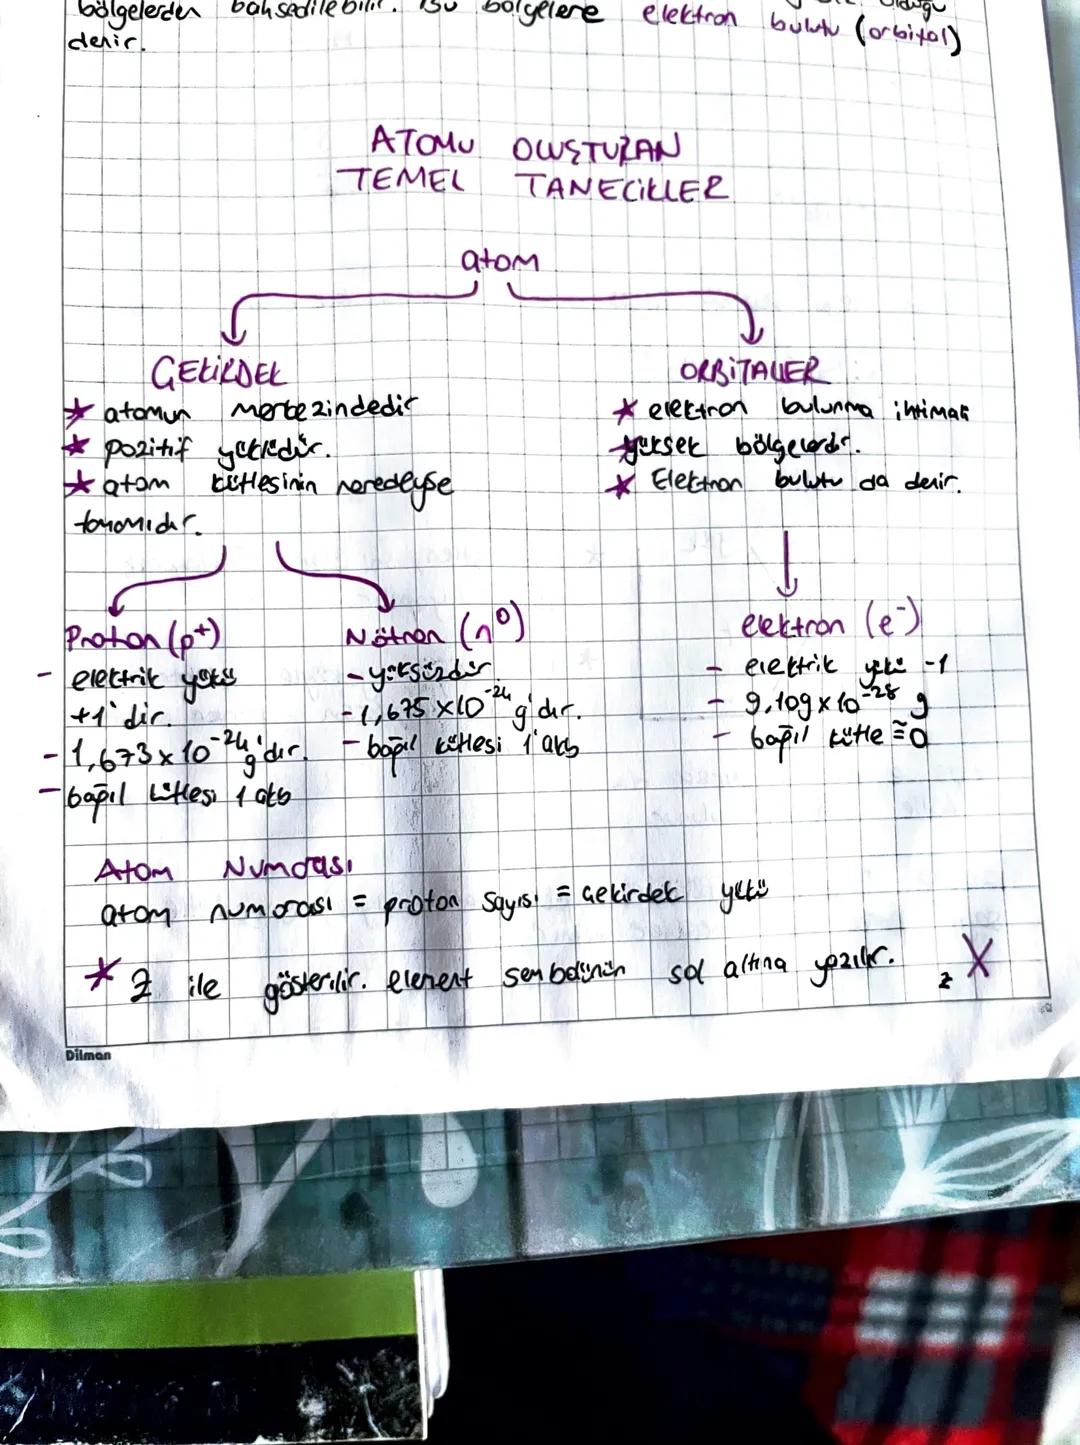 bölgelerden bahsedilebilir. Bu bölgelere elektron bulutu (orbital)
denir.
ATOMU OLUŞTURAN
TEMEL TANECİKLER
atom
ÇEKİRDEK
* atomun merkezindedir
* pozitif yüklüdür.
* atom kütlesinin neredeyse
tamamıdır.
ORBİTALLER
* elektron bulunma ihtimali
yüksek bölgelerdir.
* Elektron bulutu da denir.
Proton (p⁺)
- elektrik yükü
+1'dir.
- 1,673 x 10⁻²⁴ g'dır.
- bağıl kütlesi 1 akb
Nötron (n⁰)
- yüksüzdür
- 1,675 x10⁻²⁴ g'dır.
- bağıl kütlesi 1 akb
elektron (e⁻)
- elektrik yükü -1
- 9,109 x 10⁻²⁸ g
- bağıl kütle ≅ 0
Atom Numarası
atom numarası = proton sayısı = Çekirdek yükü
* Z ile gösterilir. element sembolünün sol altına yazılır. z X
Dilman